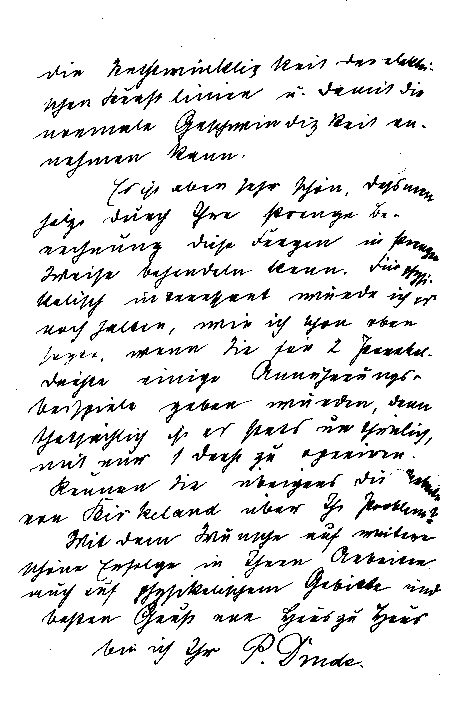 die Rechtwinkligkeit der elektri-
schen Kraftlinien u. damit die
normale Geschwindigkeit an-
nehmen kann.
Es ist aber sehr schön, dass man
jetzt durch Ihre strenge Be-
rechnung diese Fragen in strenger
Weise behandeln kann. Für physi-
kalisch interessant würde ich es
noch halten, wie ich schon oben
sagte, wenn Sie für 2 Parallel-
drähte einige Annäherungs-
beispiele geben würden, denn
thatsächlich ist es stets unthunlich,
mit nur 1 Draht zu operiren.
Kennen Sie übrigens die Arbeiten
von Birkeland über Ihr Problem?
Mit dem Wunsche auf weitere
schöne Erfolge in Ihren Arbeiten
auch auf physikalischem Gebiete und
besten Gruss von Haus zu Haus
bin ich Ihr P. Drude.